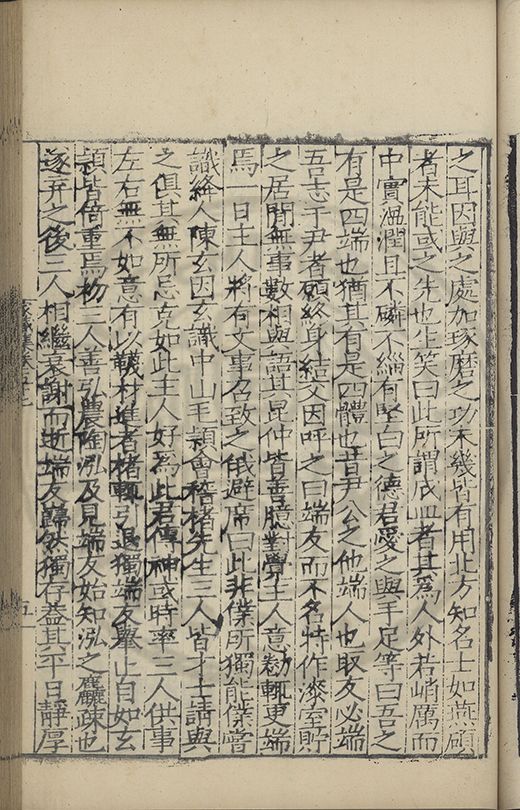 之耳因與之處加琢磨之功未幾皆有用北方知名士如燕碩
者未能或之先也生笑曰此所謂成皿者其爲人外若峭厲而
中實溫潤且不磷不緇有堅白之德君愛之與手足等曰吾之
有是四端也猶其有是四體也昔尹公之他端人也取友必端
吾志于尹者願終身結交因呼之曰端友而不名特作漆室貯
之居閒無事數相與語其昆仲皆善臆對覺主人意勌輒更端
焉一日主人將有文事召致之俄避席曰此非僕所獨能僕嘗
識絳人陳玄因玄識中山毛穎會稽楮先生三人皆才士請與
之俱其無所忌克如此主人好爲此君傳神或時率三人供事
左右無不如意有以韈材進者楮輒引退獨端友舉止自如玄
穎皆倍重焉初三人善弘農陶泓及見端友始知泓之麤疎也
遂弃之後三人相繼衰謝而逝端友巋然獨存益其平日靜厚
五